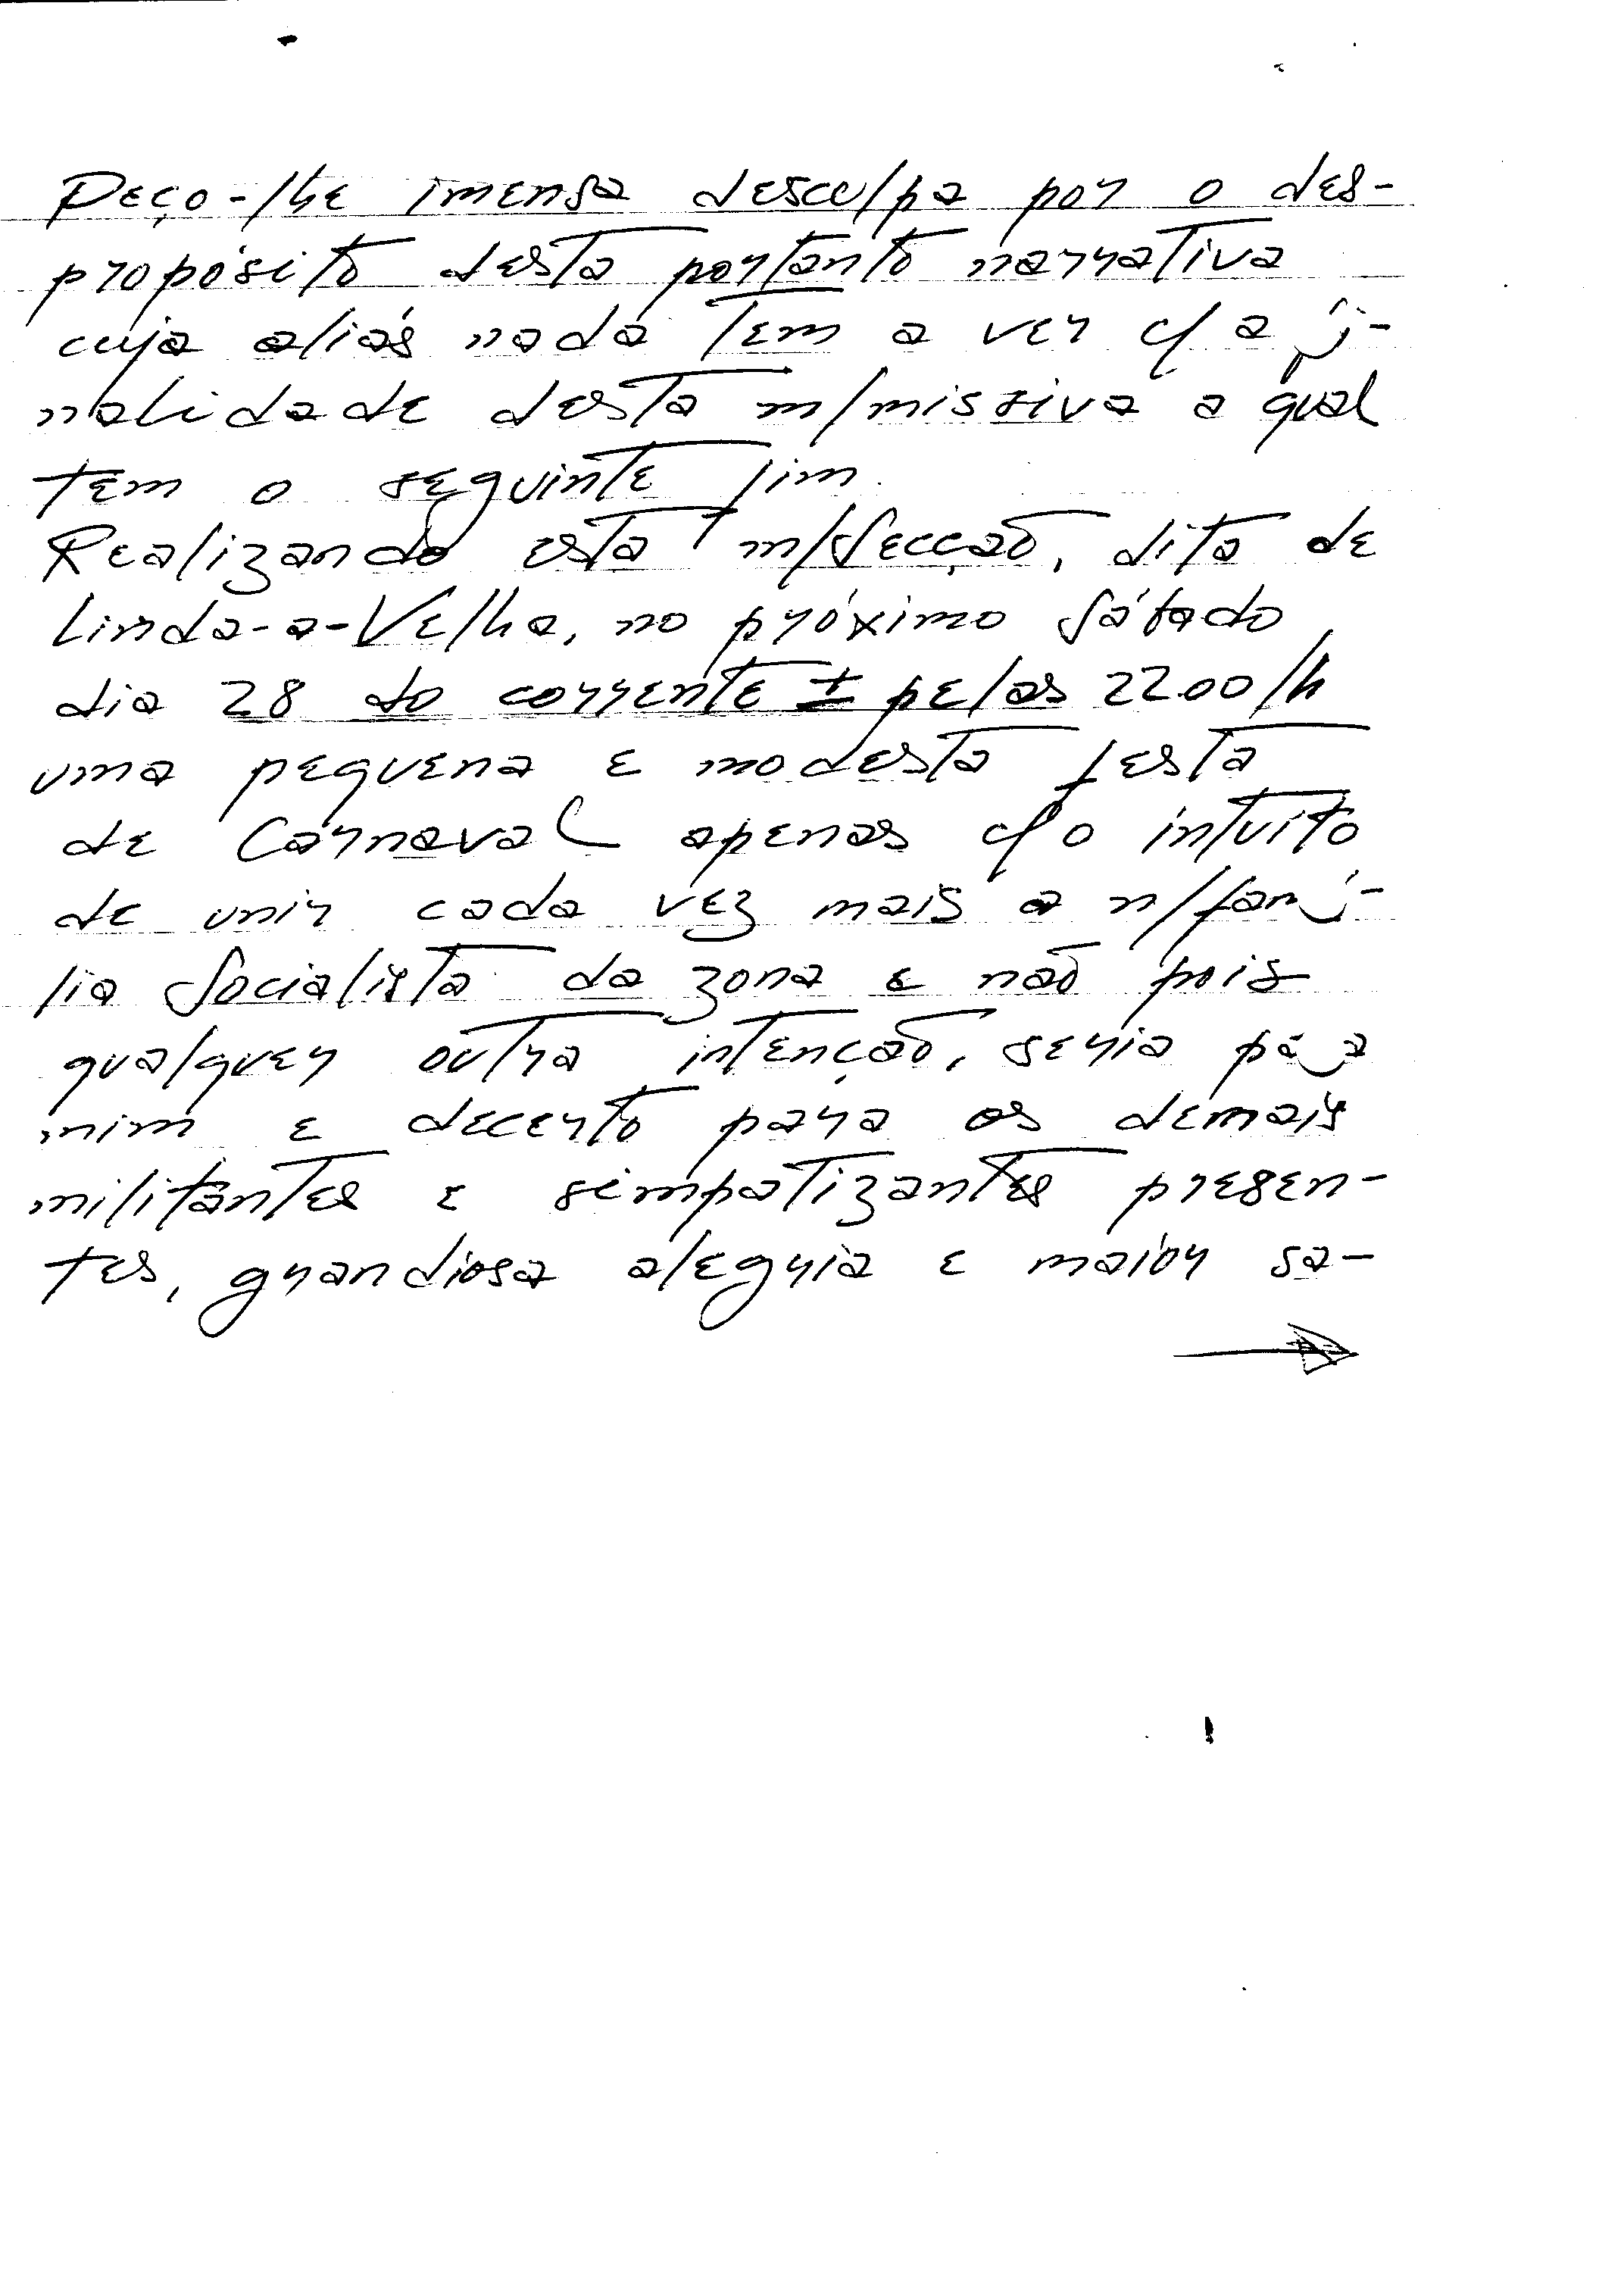 Peço-lhe imensa desculpa por o des-
propósito desta portanto narrativa
cuja aliás nada tem a ver c/ a fi-
nalidade desta m/missiva a qual
tem o seguinte fim.
Realizando esta m/Secção, dita de
Linda-a-Velha, no próximo Sábado
dia 28 do corrente ± pelas 2200/h
uma pequena e modesta festa
de Carnaval apenas c/ o intuito
de unir cada vez mais a n/famí-
lia Socialista da zona e não pois
qualquer outra intenção, seria para
mim e decerto para os demais
militantes e simpatizantes presen-
tes, grandiosa alegria e maior sa-